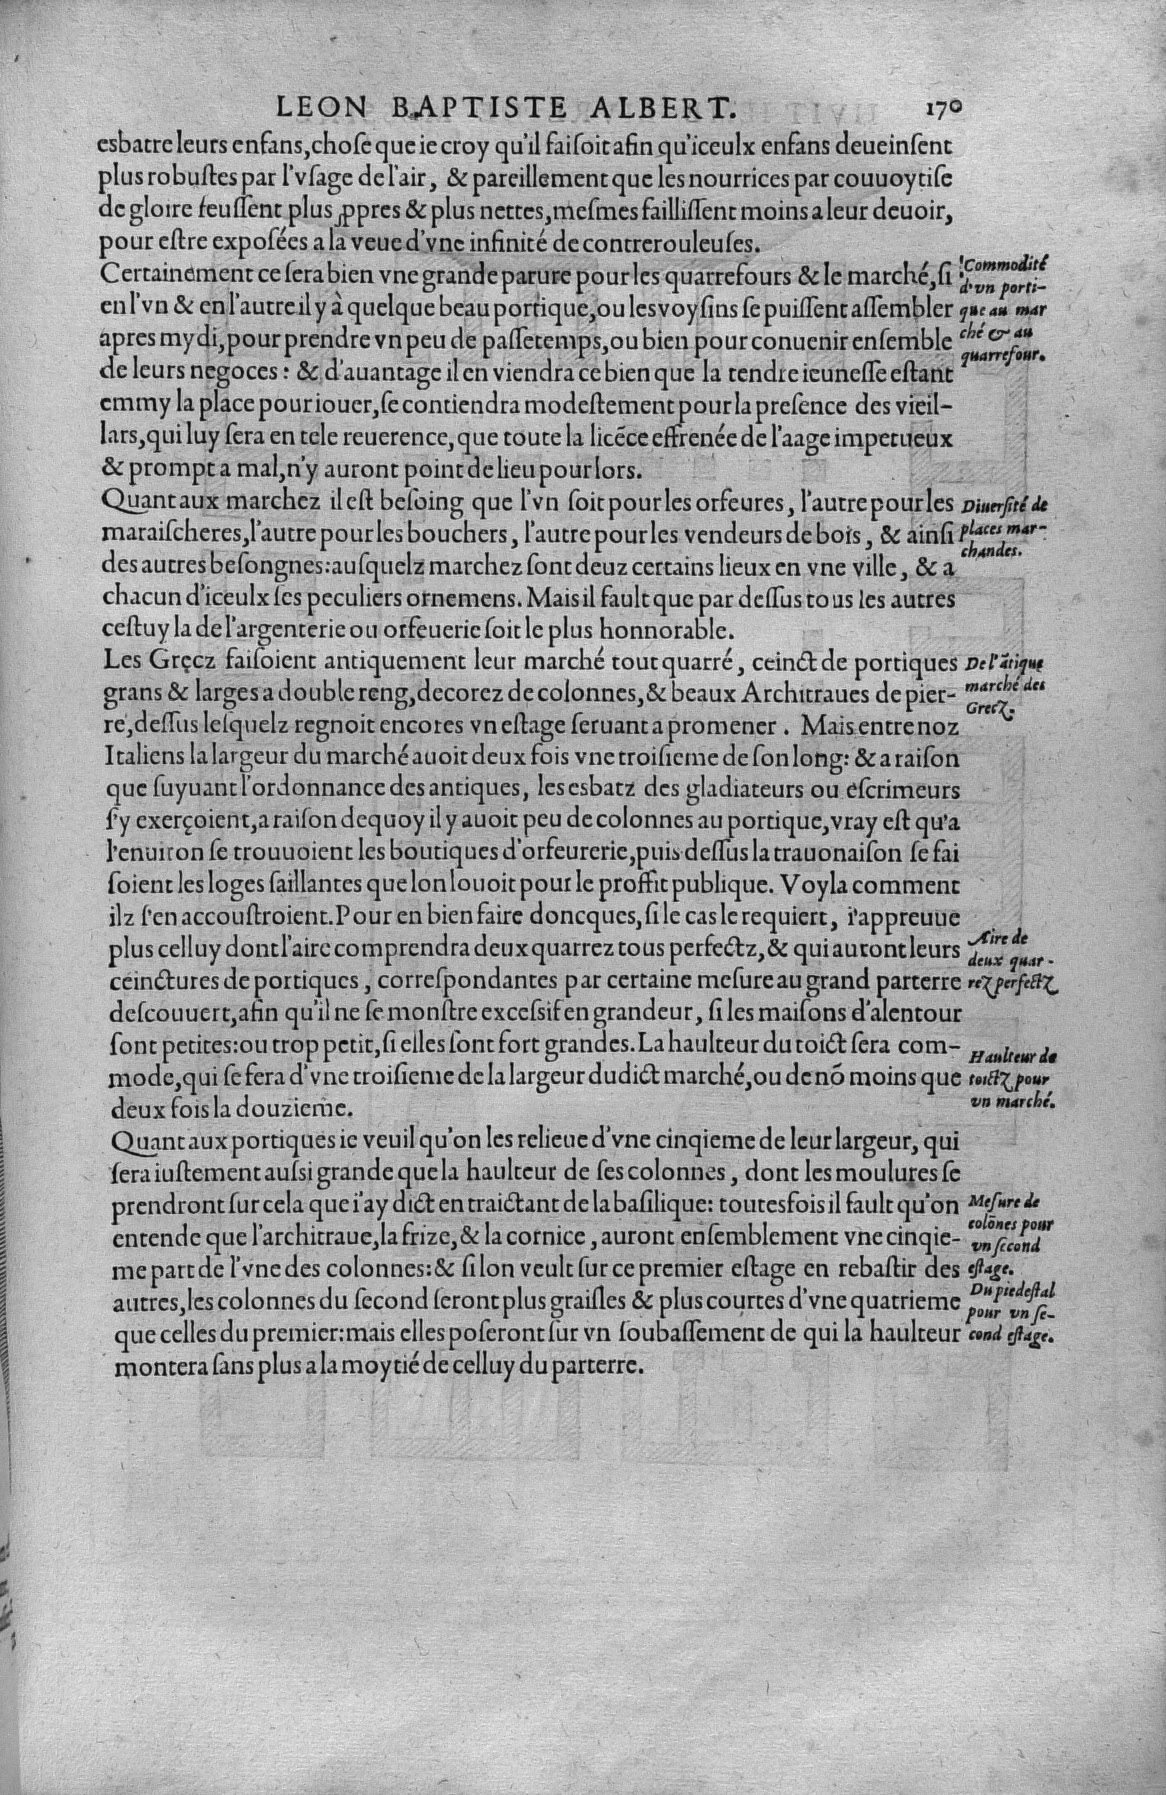 LEON BAPTISTE ALBERT. 170
esbatre leurs enfans, chose que ie croy qu'il faisoit afin qu'iceulx enfans deueinsent
plus robustes par l'vsage de l'air, & pareillement que les nourrices par couuoytise
de gloire feussent plus ꝓpres & plus nettes, mesmes faillissent moins a leur deuoir,
pour estre exposées a la veue d'vne infinité de contrerouleuses.
Certainement ce sera bien vne grande parure pour les quarrefours & le marché, si
en l'vn & en l'autre il y à quelque beau portique, ou les voysins se puissent assembler
apres mydi, pour prendre vn peu de passetemps, ou bien pour conuenir ensemble
de leurs negoces: & d'auantage il en viendra ce bien que la tendre ieunesse estant
emmy la place pour iouer, se contiendra modestement pour la presence des vieil-
lars, qui luy sera en tele reuerence, que toute la licẽce effrenée de l'aage impetueux
& prompt a mal, n'y auront point de lieu pour lors.
Commodité
d'vn porti-
que au mar
ché & au
quarrefour.
Quant aux marchez il est besoing que l'vn soit pour les orfeures, l'autre pour les
maraischeres, l'autre pour les bouchers, l'autre pour les vendeurs de bois, & ainsi
des autres besongnes: ausquelz marchez sont deuz certains lieux en vne ville, & a
chacun d'iceulx ses peculiers ornemens. Mais il fault que par dessus tous les autres
cestuy la de l'argenterie ou orfeuerie soit le plus honnorable.
Diuersité de
places mar-
chandes.
Les Gręcz faisoient antiquement leur marché tout quarré, ceinct de portiques
grans & larges a double reng, decorez de colonnes, & beaux Architraues de pier-
re, dessus lesquelz regnoit encores vn estage seruant a promener. Mais entre noz
Italiens la largeur du marché auoit deux fois vne troisieme de son long: & a raison
que suyuant l'ordonnance des antiques, les esbatz des gladiateurs ou escrimeurs
s'y exerçoient, a raison dequoy il y auoit peu de colonnes au portique, vray est qu'a
l'enuiron se trouuoient les boutiques d'orfeurerie, puis dessus la trauonaison se fai
soient les loges saillantes que lon louoit pour le proffit publique. Voyla comment
ilz s'en accoustroient. Pour en bien faire doncques, si le cas le requiert, i'appreuue
plus celluy dont l'aire comprendra deux quarrez tous perfectz, & qui auront leurs
ceinctures de portiques, correspondantes par certaine mesure au grand parterre
descouuert, afin qu'il ne se monstre excessif en grandeur, si les maisons d'alentour
sont petites: ou trop petit, si elles sont fort grandes. La haulteur du toict sera com-
mode, qui se fera d'vne troisieme de la largeur dudict marché, ou de nõ moins que
deux fois la douzieme.
De l'ãtique
marché des
Grecz.
Aire de
deux quar-
rez perfectz
Haulteur de
toictz pour
vn marché.
Quant aux portiques ie veuil qu'on les relieue d'vne cinqieme de leur largeur, qui
sera iustement aussi grande que la haulteur de ses colonnes, dont les moulures se
prendront sur cela que i'ay dict en traictant de la basilique: toutesfois il fault qu'on
entende que l'architraue, la frize, & la cornice, auront ensemblement vne cinqie-
me part de l'vne des colonnes: & si lon veult sur ce premier estage en rebastir des
autres, les colonnes du second seront plus graisles & plus courtes d'vne quatrieme
que celles du premier: mais elles poseront sur vn soubassement de qui la haulteur
montera sans plus a la moytié de celluy du parterre.
Mesure de
colõnes pour
vn second
estage.
Du piedestal
pour vn se-
cond estage.